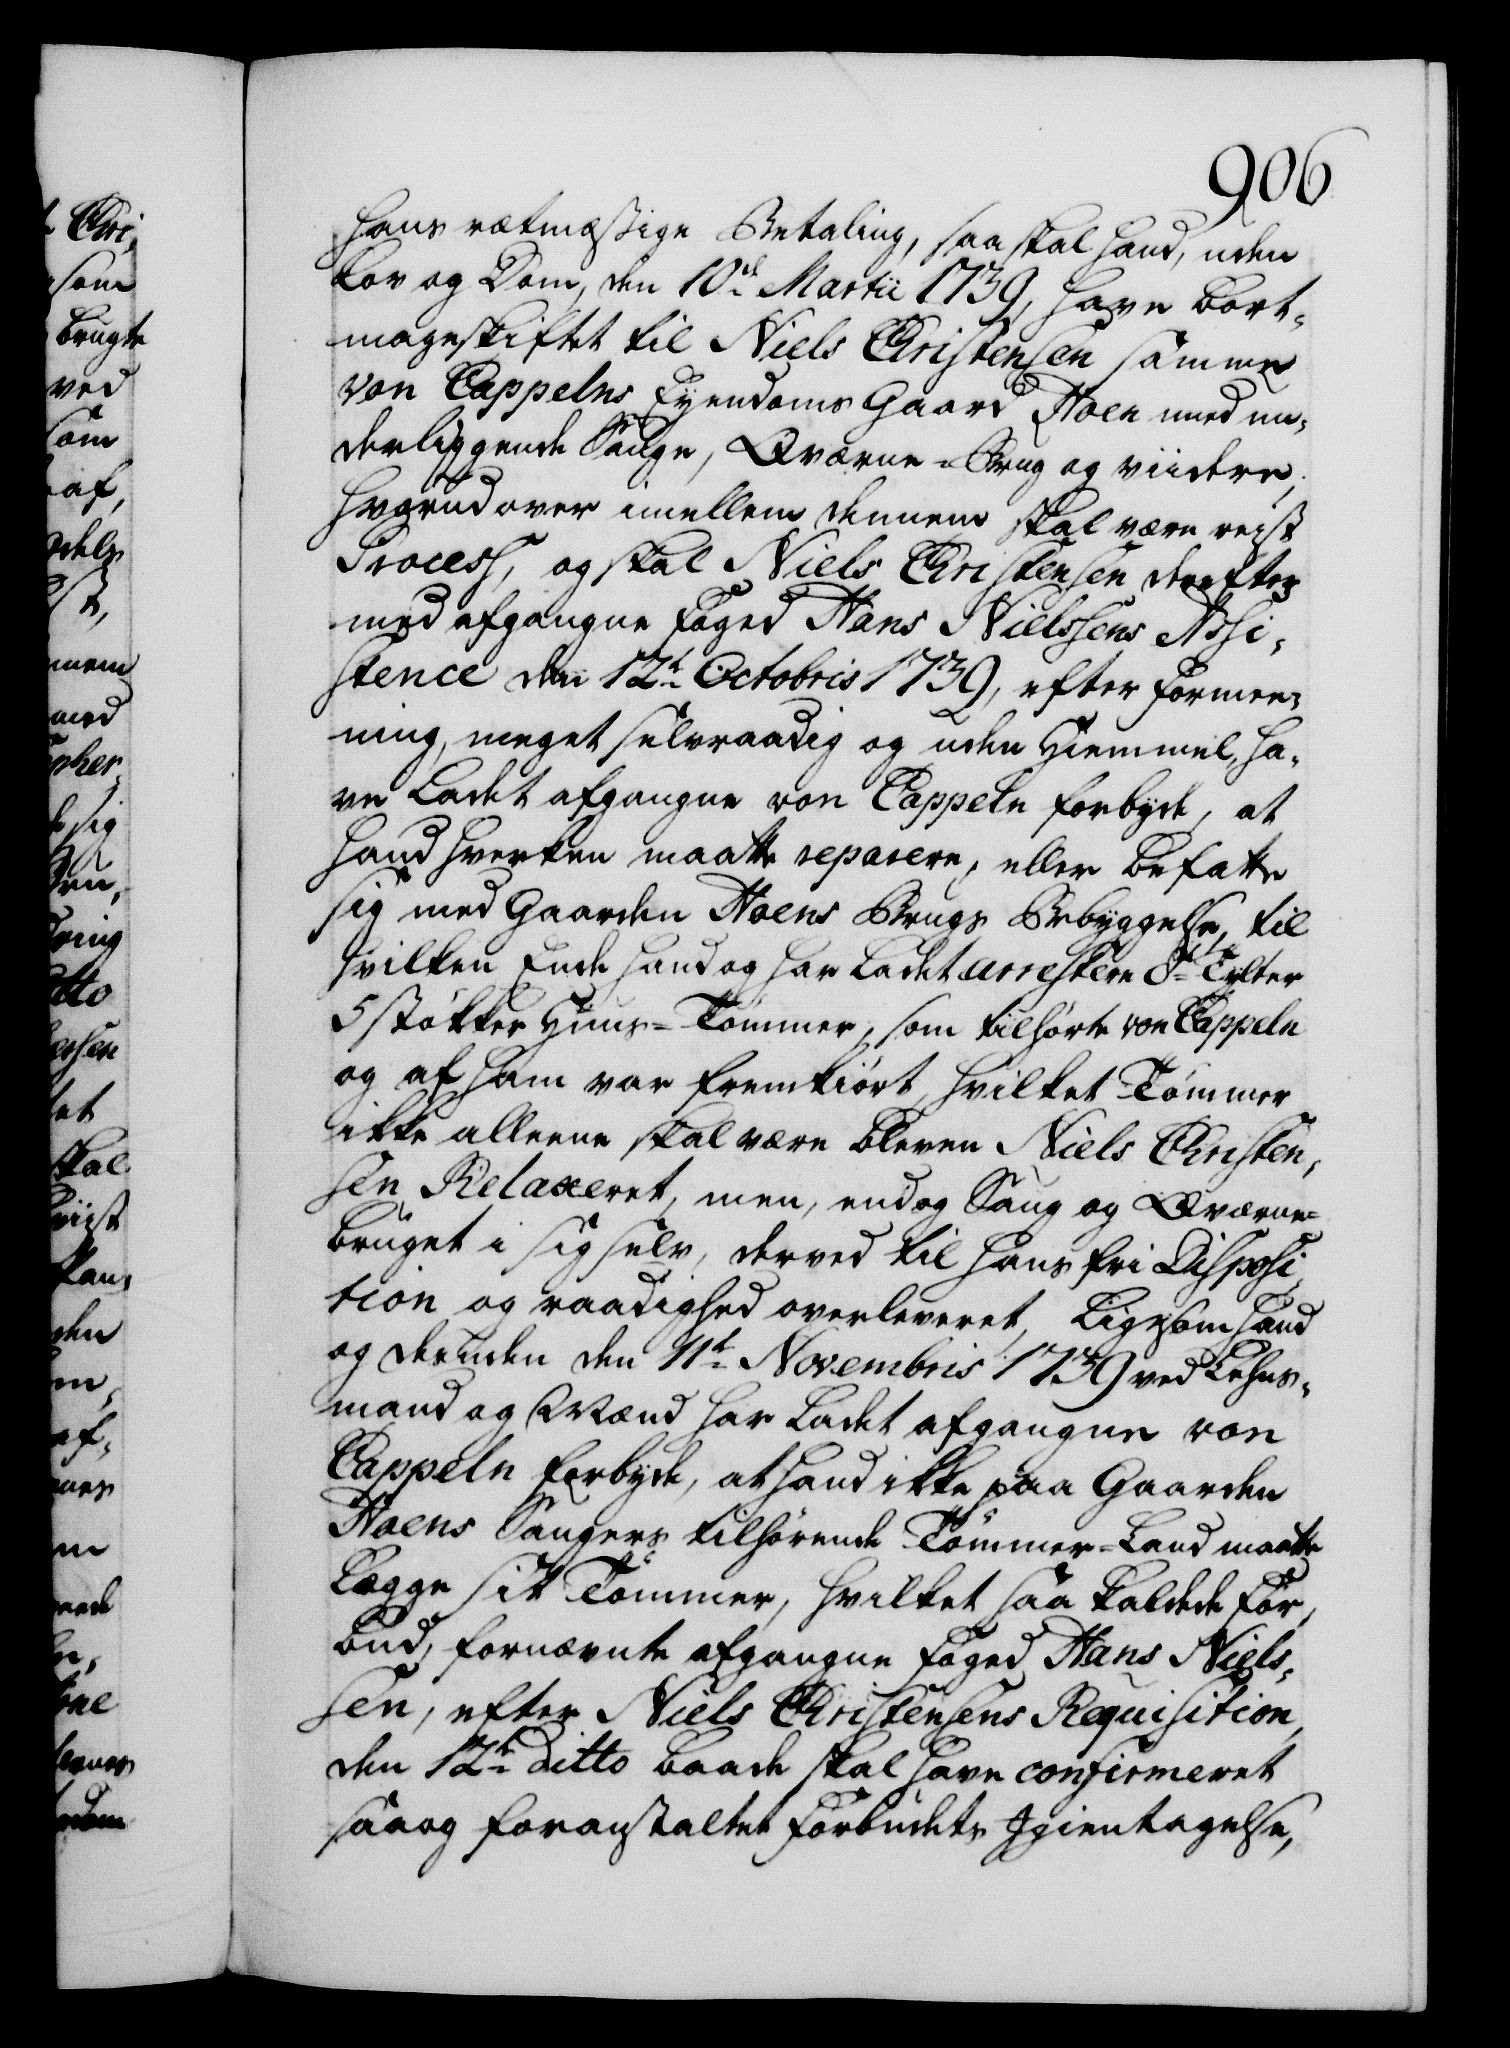 906
hans rætmæssige Betaling, saa skal hand, uden
Lov og Dom, den 10de Martii 1739, have bort-
mageskiftet til Niels Christensen samme
von Cappelns Eyendoms Gaard Hoen med un-
derliggende Sauge, Qværne-Brug og viidere,
hvorudover imellem dennem skal være reist
Process, og skal Niels Christensen derefter
med afgangne Foged Hans Nielssens Assi-
stence den 12te Octobris 1739, efter Formee-
ning, meget selvraadig og uden Hiemmel, ha-
ve ladet afgangne von Cappeln forbyde, at
hand hverken maatte reparere, eller befatte
sig med Gaarden Hoens Brugs Bebyggelse, til
hvilken Ende hand og har ladet arrestere 8te Tylter
5 støkker Huus-Tømmer, som tilhørte von Cappeln
og af ham var fremkiørt, hvilket Tømmer
ikke alleene skal være bleven Niels Christen-
sen Relaxeret, men, endog Saug og Qværne-
bruget i sig selv, derved til hans fri Disposi-
tion og raadighed overleveret, Ligesom hand
og desuden den 11te Novembris 1739 ved Lehns-
mand og Mænd har ladet afgangne von
Cappeln forbyde, at hand ikke paa Gaarden
Hoens Saugers tilhørende Tømmer-Land maatte
Lægge sit Tømmer, hvilket saa kaldede For-
bud, fornævnte afgangne Foged Hans Niels-
sen, efter Niels Christensens Requisition,
den 12te ditto baade skal have confirmeret
saaog foranstaltet Forbudets Igientagelse,